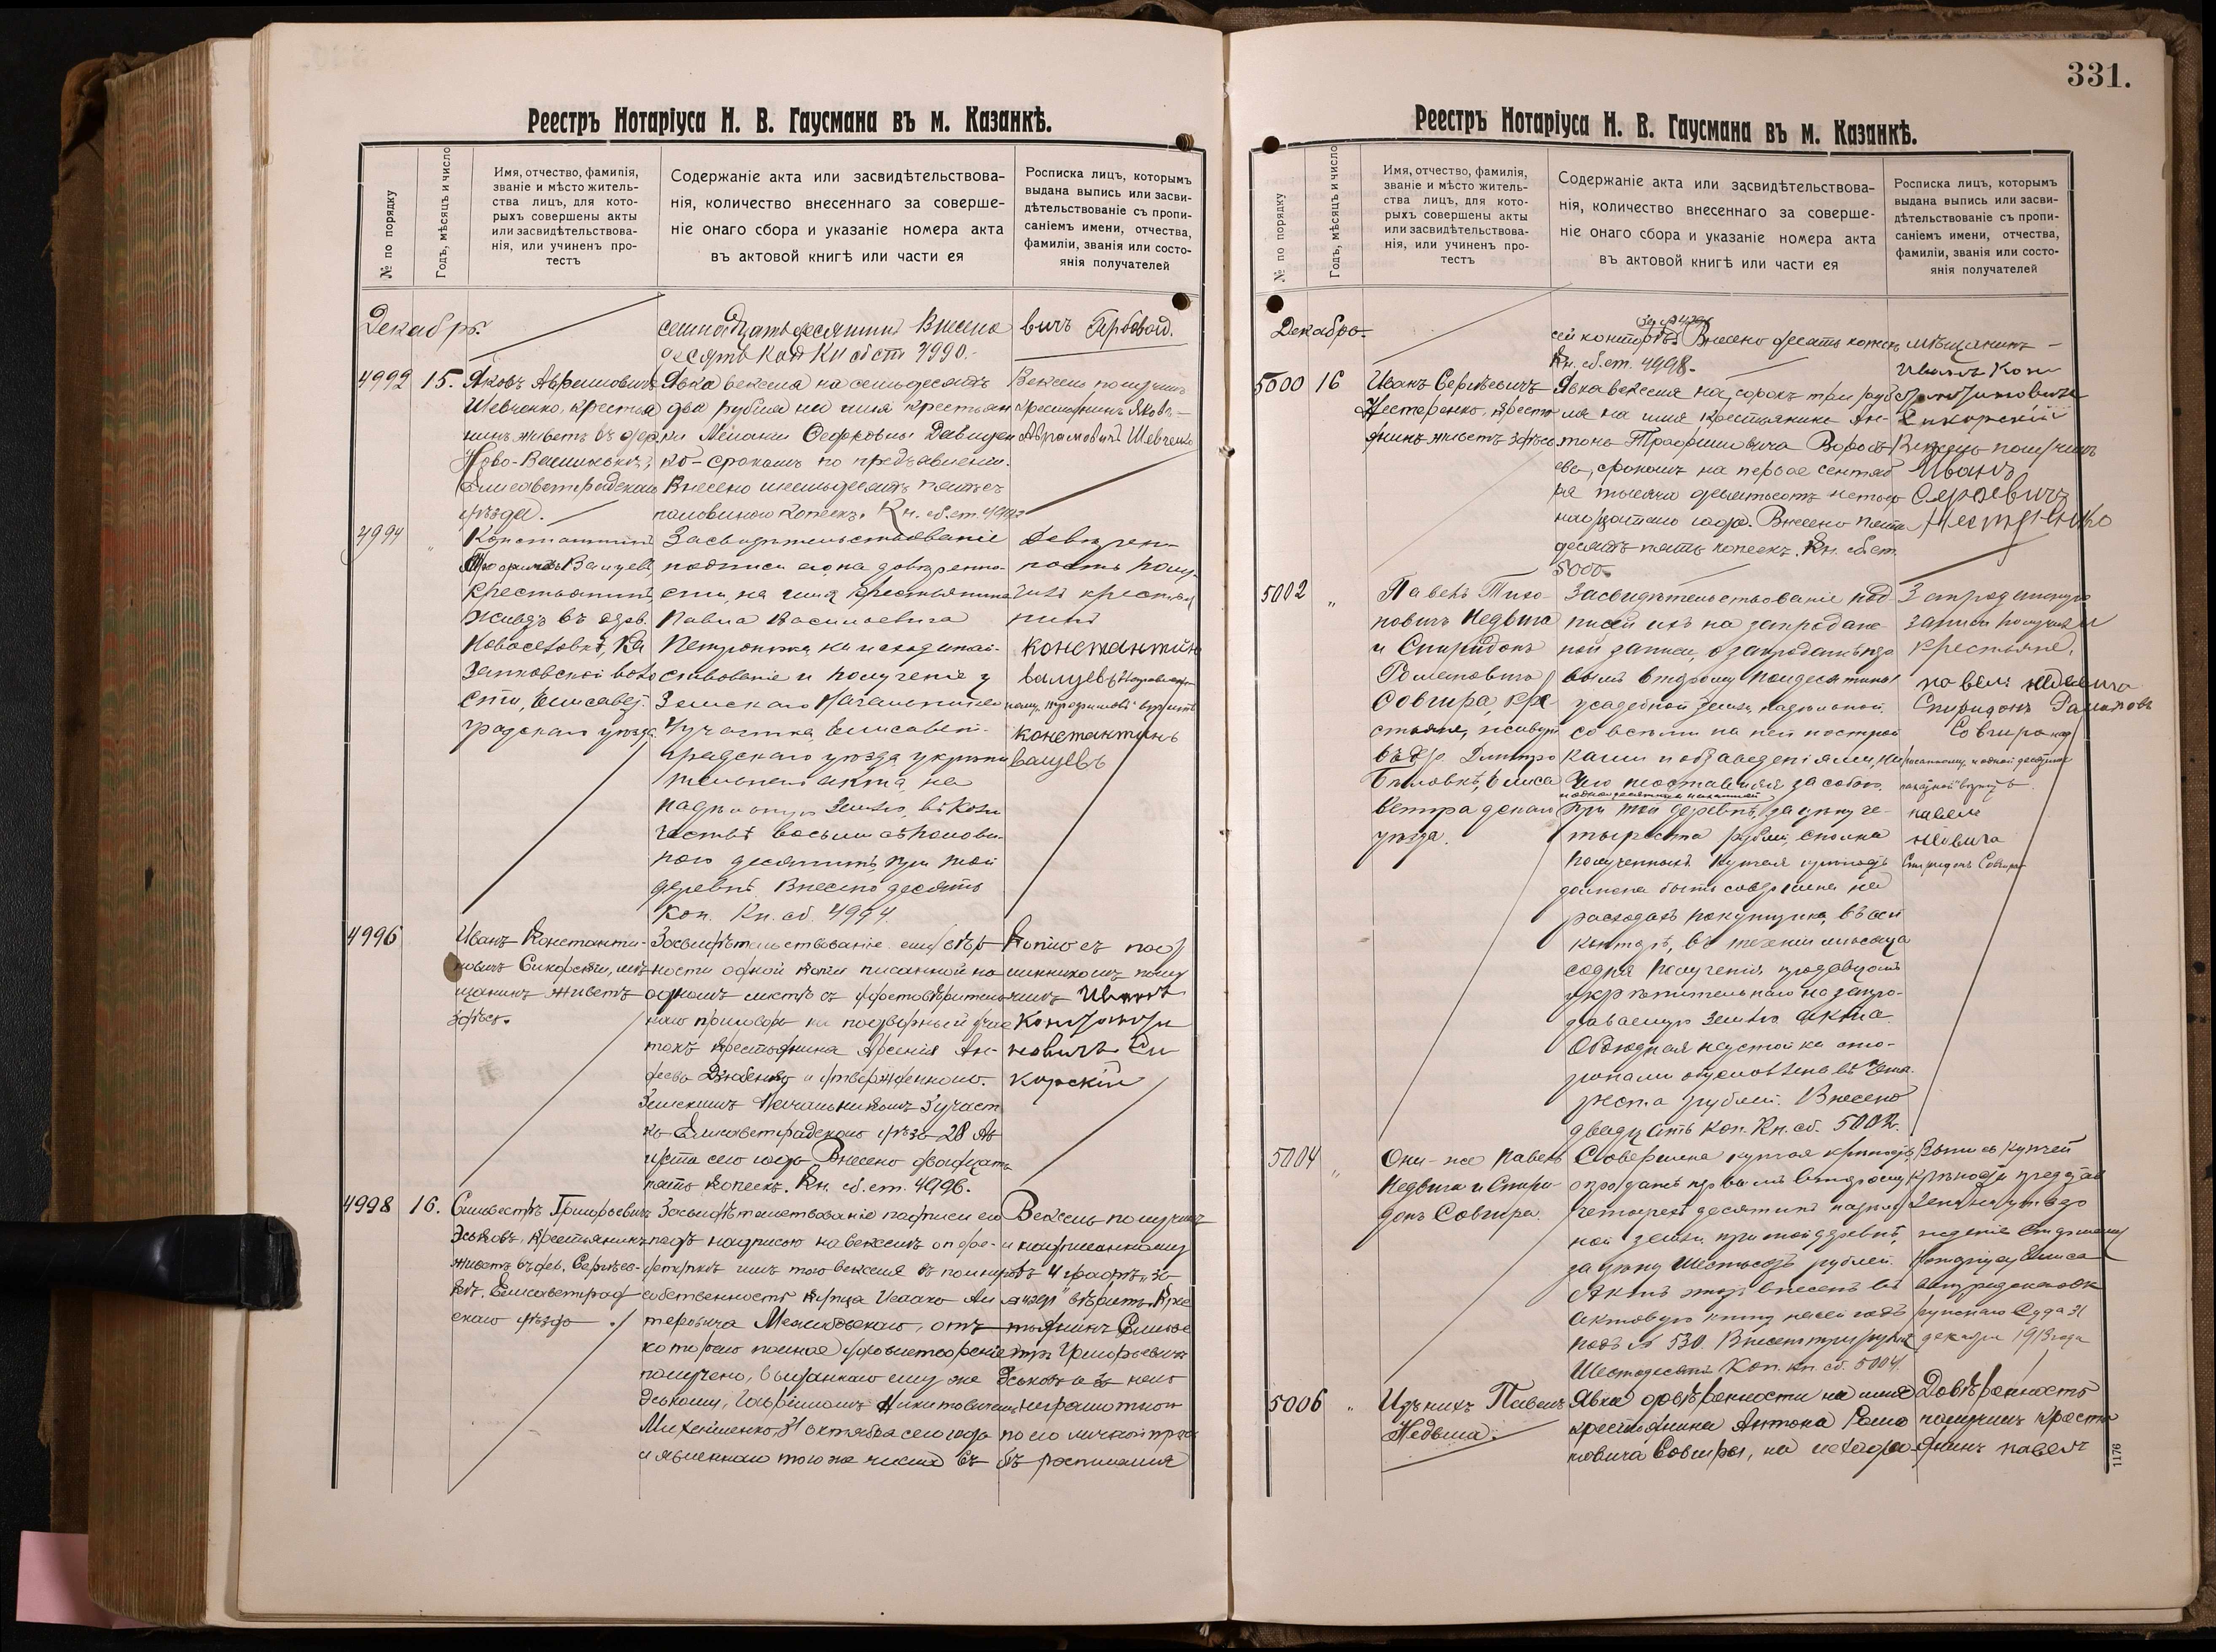 Реестръ Нотаріуса Н. В. Гаусмана въ м. Казанкѣ.
№ по порядку
Годъ, мѣсяцъ и число
Имя, отчество, фамилія,
званіе и мѣсто житель-
ства лицъ, для кото-
рыхъ совершены акты
или засвидѣтельствова-
нія, или учиненъ про-
тестъ
Содержаніе акта или засвидѣтельствова-
нія, количество внесеннаго за соверше-
ніе онаго сбора и указаніе номера акта
въ актовой книгѣ или части ея
Росписка лицъ, которымъ
выдана выпись или засви-
дѣтельствованіе съ пропи-
саніемъ имени, отчества,
фамиліи, званія или состо-
янія получателей
Декабрь.
Внесено
десять коп Кн сб ст 4990.
вичъ
4992
15.
Яковъ Аврамовичъ
Шевченко, крестья
нинъ живетъ въ дер
Ново-Васильевкѣ,
Елисаветградскаго
уѣзда.
Явка векселя на семьдесятъ
два рубля на имя крестьян
ки Меланьи Ѳедоровны Давиден
ко - срокомъ по предъявленіи.
Внесено шестьдесятъ пять съ
половиною копеекъ. Кн. сб. ст. 4992
Вексель получилъ
крестьянинъ Яковъ
Аврамовичъ Шевченко
4994
"
Константинъ
Валуевъ
крестьянинъ,
живъ въ дер.
Ка
занковской воло
сти, Елисавет-
градскаго уѣзда.
Засвидѣтельствованіе
подписи его, на довѣренно-
сти, на имя крестьянина
Павла Васильевича
на исходатай-
ствованіе и полученіе у
Земскаго Начальника
участка Елисавет-
градскаго уѣзда укрѣпи
тельнаго акта, на
надѣльную землю, въ коли
чествѣ восьми съ полови-
ною десятинъ, при той
деревнѣ. Внесено десять
Коп. Кн. сб. 4994.
Довѣрен-
ность полу-
чилъ крестья
нинъ
Константинъ
Валуевъ
константинъ
валуевъ
4996
Иванъ Константи-
новичъ Сикорскій, мѣ-
щанинъ живетъ
здѣсь.
Засвидѣтельствованіе вѣр
ности одной копіи писанной на
одномъ листѣ съ удостовѣритель
наго приговора на подворный учас
токъ крестьянина Арсенія Ан-
и утвержденнаго
Земскимъ Начальникомъ 3 участ
ка Елисаветградскаго уѣзда 28 Ав
густа сего года. Внесено двадцать
пять копеекъ. Кн. сб. ст. 4996.
Копію съ под
линникомъ полу
чилъ Иванъ
Константи
новичъ Си
корскій
4998
16.
Сильвестръ Григорьевичъ
Эськовъ, крестьянинъ
живетъ въ дер. Сергѣев-
кѣ, Елисаветград
скаго уѣзда
Засвидѣтельствованіе подписи его
подъ надписью на векселѣ о пере-
уступкѣ имъ того векселя въ полную
собственность купца Исаака
отъ
котораго полное удовлетвореніе
получено, выданнаго ему же
Эськову, Гавріиломъ Никитовичемъ
Михайленко, 31 октября сего года
и явленнаго того же числа въ
Вексель получилъ
и надписанному
въ 4 графѣ „за
вѣрить. Крес
тьянинъ Сильве
стръ Григорьевичъ
Эськовъ а за него
неграмотнаго
по его личной прось
бѣ расписался
331.
Реестръ Нотаріуса Н. В. Гаусмана въ м. Казанкѣ.
№ по порядку
Годъ, мѣсяцъ и число
Имя, отчество, фамилія,
званіе и мѣсто житель-
ства лицъ, для кото-
рыхъ совершены акты
или засвидѣтельствова-
нія, или учиненъ про-
тестъ
Содержаніе акта или засвидѣтельствова-
нія, количество внесеннаго за соверше-
ніе онаго сбора и указаніе номера акта
въ актовой книгѣ или части ея
Росписка лицъ, которымъ
выдана выпись или засви-
дѣтельствованіе съ пропи-
саніемъ имени, отчества,
фамиліи, званія или состо-
янія получателей
Декабрь.
сей конторѣ. Внесено десять копеекъ
Кн. сб. ст. 4998.
мѣщанинъ
Иванъ Кон
стантиновичъ
Сикорскій
5000
16
Иванъ Сергѣевичъ
Нестеренко, кресть
янинъ живетъ здѣсь.
Явка векселя на сорокъ три руб
ля на имя крестьянина Ан-
тона Трофимовича
срокомъ на первое сентяб
ря тысяча девятьсотъ четыр
надцатаго года. Внесено пять
десятъ пять копеекъ. Кн. сб. ст.
5000.
Вексель получилъ
Иванъ
Сергѣевичъ
Нестеренко
5002
"
Павелъ Тихо-
новичъ Недвига
и Спиридонъ
Романовичъ
Совгира, кре
стьяне, живутъ
въ др. Дмитро
Бѣловкѣ, Елиса
ветградскаго
уѣзда.
Засвидѣтельствованіе под
писей ихъ на запродаж
ной записи, о запродажѣ пер
вымъ второму полдесятины
усадебной земли, надѣльной,
со всѣми на ней построй
ками и обзаведеніями,
при той деревнѣ, за цѣну че-
тыреста рублей, сполна
полученныхъ. Купчая крѣпость
должна быть совершена на
расходахъ покупщика, въ сей
конторѣ, въ теченіи мѣсяца
со дня полученія продавцомъ
укрѣпительнаго на запро-
даваемую землю акта.
Обоюдная неустойка сто-
ронами обусловлена въ четы-
реста рублей. Внесено
двадцать коп. Кн. сб. 5002.
Запродажную
запись получили
крестьяне,
павелъ недвига
Спиридонъ Романовъ
Совгира
павелъ
недвига
Спиридонъ Совгира
5004
"
Они-же Павелъ
Недвига и Спири
донъ Совгира.
Совершена купчая крѣпость
о продажѣ первымъ второму
четырехъ десятинъ надѣль
ной земли при той деревнѣ,
за цѣну шестьсотъ рублей.
Актъ этотъ внесенъ въ
актовую книгу на сей годъ
подъ № 530. Внесен три рубля
шестьдесятъ Коп. кн. сб. 5004.
Выпись купчей
крѣпости представ
лена на утвер
жденіе Старшему
Нотаріусу Елиса
ветградскаго Ок
ружнаго Суда 31
декабря 1913 года
5006
"
Изъ нихъ Павелъ
Недвига.
Явка довѣренности на имя
крестьянина Антона Рома
новича Совгиры, на исхода
Довѣренность
получилъ кресть
янинъ павелъ
1176